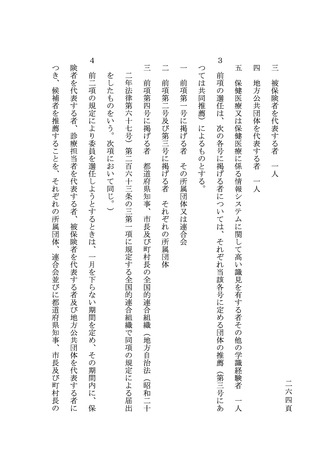 三　被保険者を代表する者　一人
四　地方公共団体を代表する者　一人
五　保健医療又は保健医療に係る情報システムに関して高い識見を有する者その他の学識経験者　一人
３　前項の選任は、次の各号に掲げる者については、それぞれ当該各号に定める団体の推薦（第三号にあ
つては共同推薦）によるものとする。
一　前項第一号に掲げる者　その所属団体又は連合会
二　前項第二号及び第三号に掲げる者　それぞれの所属団体
三　前項第四号に掲げる者　都道府県知事、市長及び町村長の全国的連合組織（地方自治法（昭和二十
二年法律第六十七号）第二百六十三条の三第一項に規定する全国的連合組織で同項の規定による届出
をしたものをいう。次項において同じ。）
４　前二項の規定により委員を選任しようとするときは、一月を下らない期間を定め、その期間内に、保
険者を代表する者、診療担当者を代表する者、被保険者を代表する者及び地方公共団体を代表する者に
つき、候補者を推薦することを、それぞれの所属団体、連合会並びに都道府県知事、市長及び町村長の
二六四頁